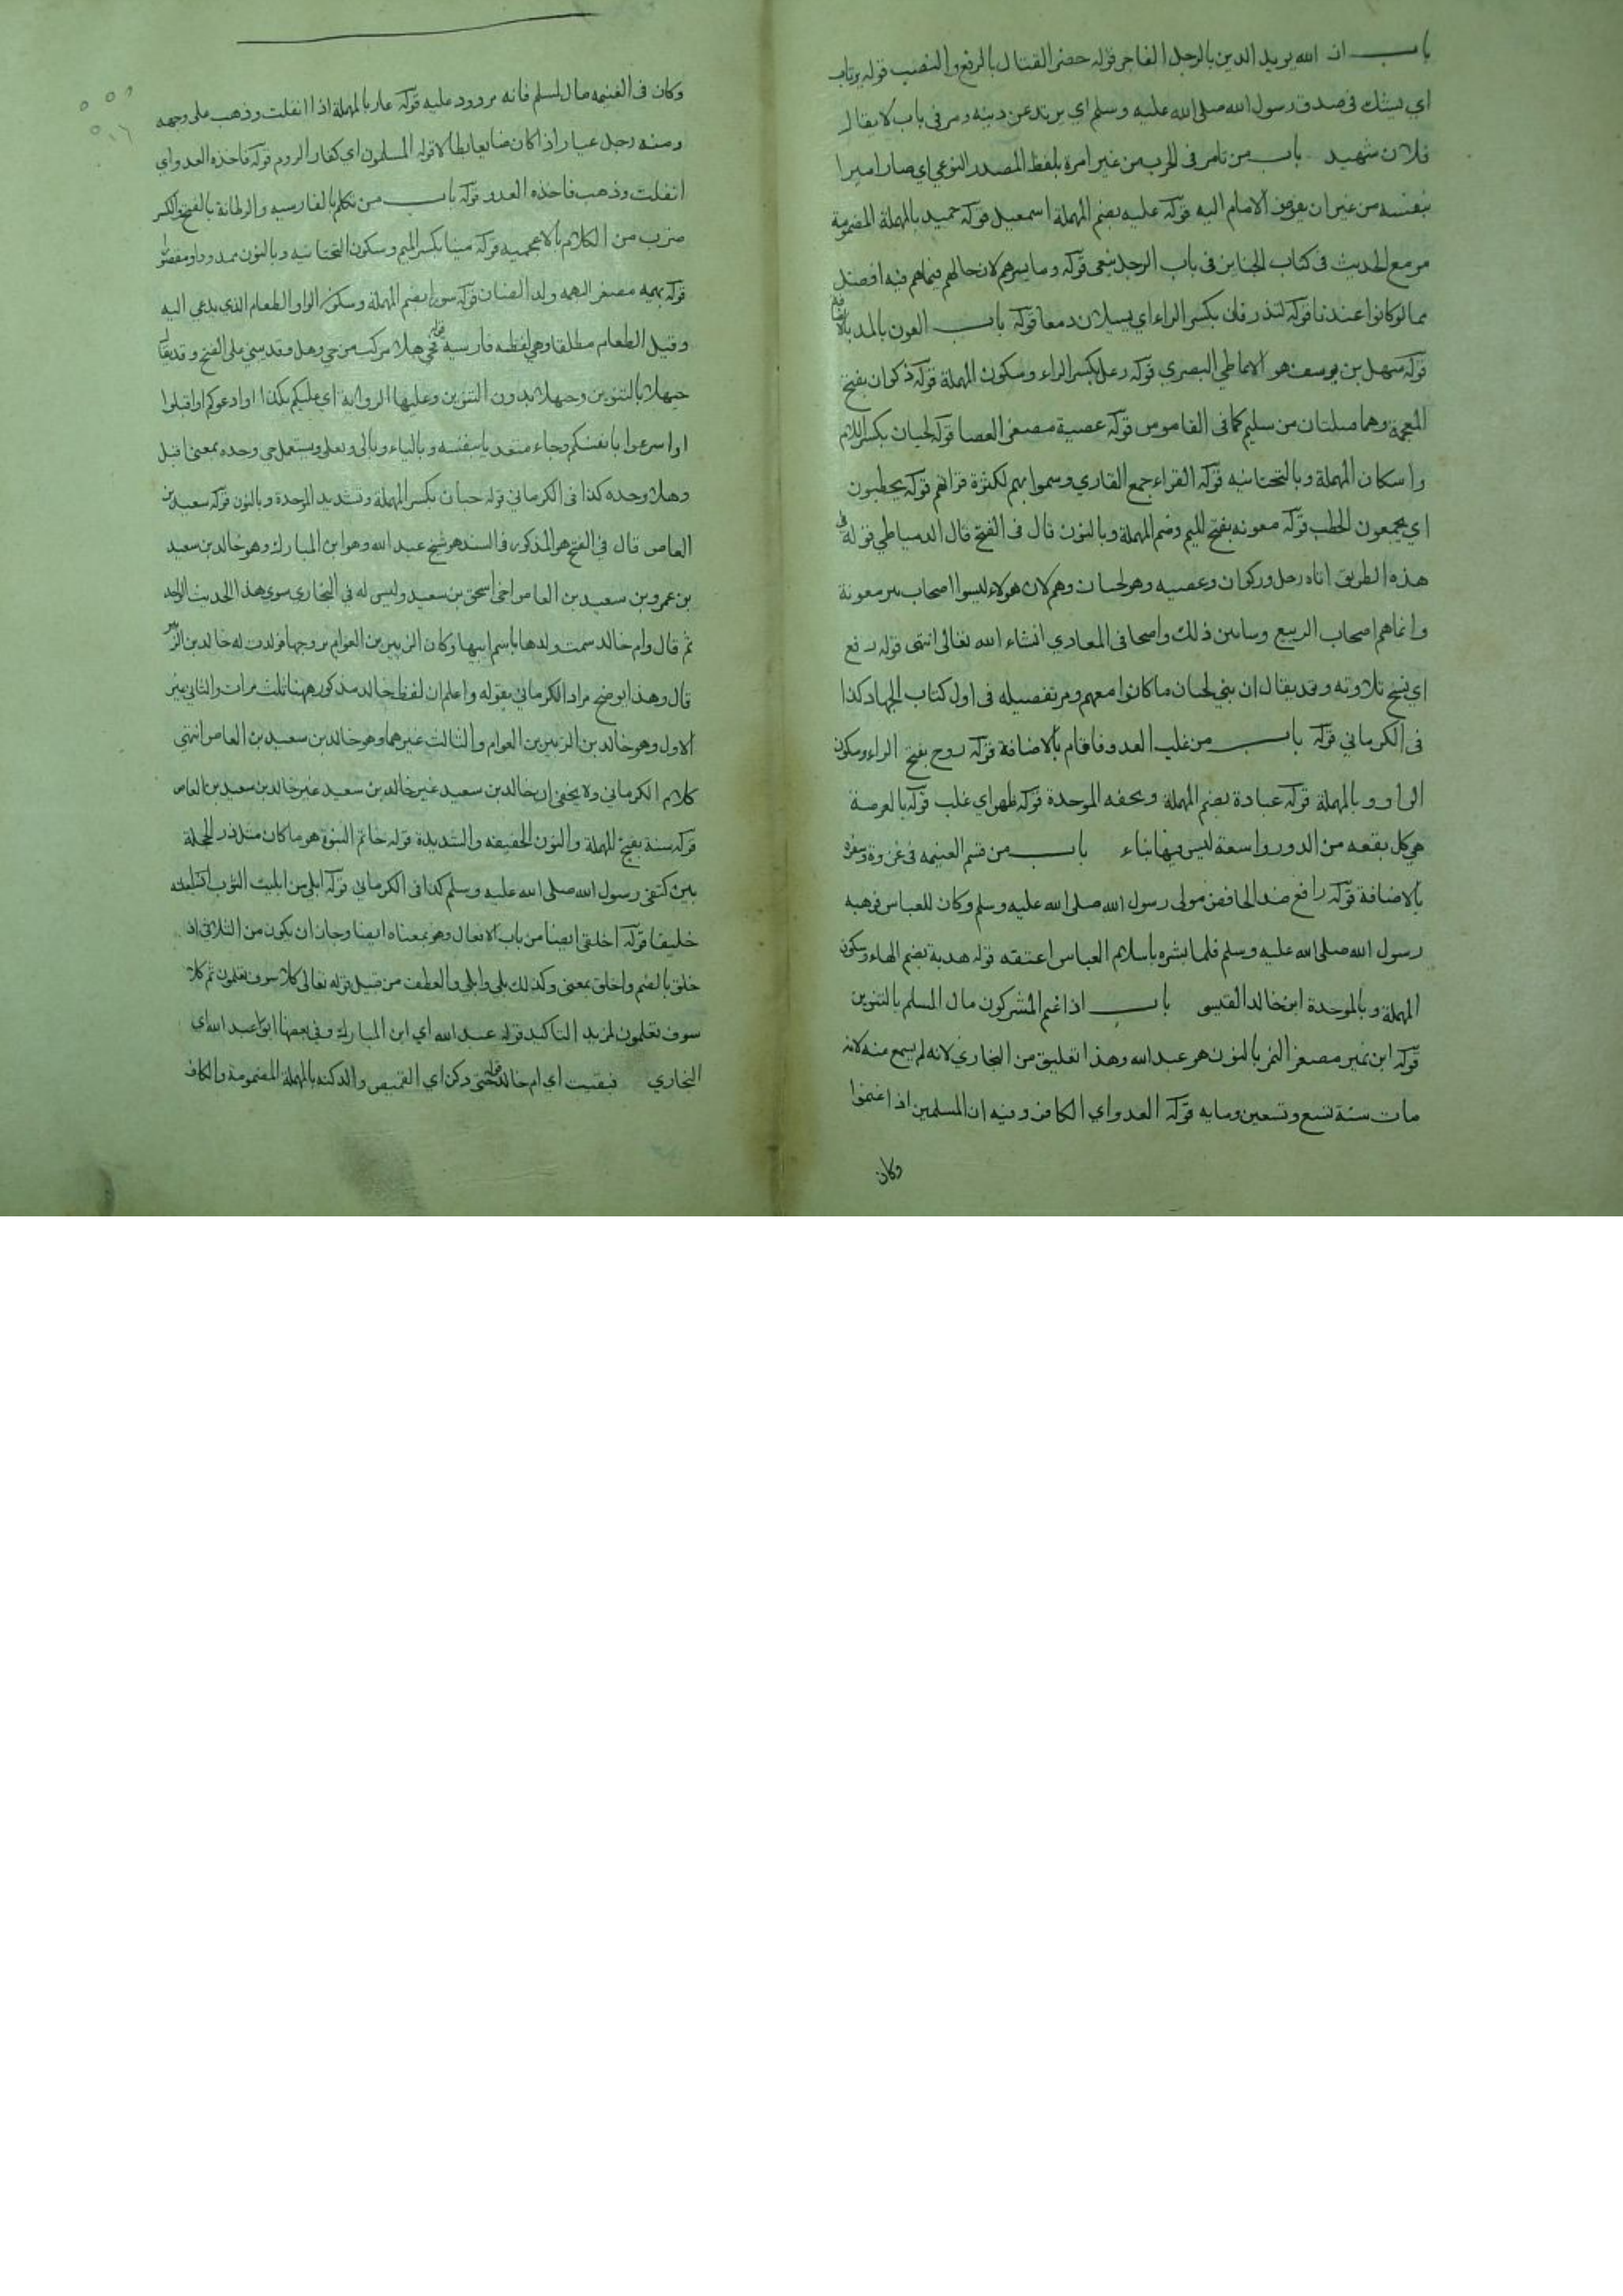 باب ان الله يريد الدين بالرجل الفاجر قوله حضر القتال بالرفع والنصب قوله يرتاب
اي يشك في صدق رسول الله صلى الله عليه وسلم اي يرتد عن دينه ومر في باب لا يقال
فلان شهيد باب من تامر في الحرب من غير امرة بلفظ المصدر النوعي اي صار اميرا
بنفسه من غير ان يفوض الامام اليه قوله علية بضم المهملة اسمعيل قوله حميد بالمهملة المضمومة
مر مع الحديث في كتاب الجنايز في باب الرجل ينعى قوله وما يسرهم لان حالهم فيما هم فيه افضل
مما لو كانوا عندنا قوله لتذرفان بكسر الراء اي يسيلان دمعا قوله باب العون بالمدد
قوله سهل بن يوسف هو الانماطي البصري قوله رعل بكسر الراء وسكون المهملة قوله ذكوان بفتح
المعجمة وهما قبيلتان من سليم كما في القاموس قوله عصية مصغر العصا قوله لحيان بكسر اللام
واسكان المهملة وبالتحتانيه قوله القراء جمع القاري وسموا بهم لكثرة قراتهم قوله يحطبون
اي يجمعون الحطب قوله معونه بفتح الميم وضم المهملة وبالنون قال في الفتح قال الدمياطي قوله في
هذه الطريق اتاه رعل وذكوان وعصيه وهو لحيان وهم لان هولاء ليسوا اصحاب بير معونة
وانما هم اصحاب الرجيع وسابين ذلك واضحا في المغازي انشاء الله تعالى انتهى قوله رفع
اي نسخ تلاوته وقد يقال ان بني لحيان ما كانوا معهم ومر تفصيله في اول كتاب الجهاد كذا
في الكرماني قوله باب من غلب العدو فاقام بالاضافة قوله روح بفتح الراء وسكون
الواو وبالمهملة قوله عبادة بضم المهملة وبخفه الموحدة قوله ظهر اي غلب قوله بالعرصة
هي كل بقعه من الدور واسعة ليس فيها بناء باب من قسم الغنيمه في غزوة وسفره
بالاضافة قوله رافع ضد الخافض مولى رسول الله صلى الله عليه وسلم وكان للعباس فوهبه
رسول الله صلى الله عليه وسلم فلما بشره باسلام العباس اعتقه قوله هدبة بضم الهاء وسكون
المهملة وبالموحدة ابن خالد القيسي باب اذا غنم المشركون مال المسلم بالتنوين
قوله ابن نمير مصغر النمر بالنون هو عبد الله وهذا تعليق من البخاري لانه لم يسمع منه لانه
مات سنة تسع وتسعين ومايه قوله العدو اي الكافر وفيه ان المسلمين اذا اغتنموا
وكان
وكان في الغنيمه مال لمسلم فانه مردود عليه قوله عار بالمهملة اذا انفلت وذهب على وجهه
ومنه رجل عيار اذا كان ضايعا بطالا قوله المسلمون اي كفار الروم قوله فاخذه العدو اي
انفلت وذهب فاخذه العدو قوله باب من تكلم بالفارسيه والرطانة بالفتح والكسر
ضرب من الكلام بالاعجميه قوله مينا بكسر الميم وسكون التحتانيه وبالنون ممدودا ومقصورا
قوله بهيمه مصغر البهمه ولد الضان قوله سورا بضم المهملة وسكون الواو الطعام الذي يدعي اليه
وقيل الطعام مطلقا وهي لفظه فارسيه قوله فحي هلا مركب من حي وهل وقد يبنى على الفتح وقد يقال
حيهلا بالتنوين وحيهلا بدون التنوين وعليها الرواية اي عليكم بكذا او ادعوكم او اقبلوا
او اسرعوا بانفسكم وجاء متعديا بنفسه وبالباء وبالى وبعلى ويستعمل حي وحده بمعنى اقبل
وهلا وحده كذا في الكرماني قوله حبان بكسر المهملة وتشديد الموحدة وبالنون قوله سعيد بن
العاص قال في الفتح هو المذكور في السند هو شيخ عبد الله وهو ابن المبارك وهو خالد بن سعيد
بن عمرو بن سعيد بن العاص اخي اسحق بن سعيد وليس له في البخاري سوى هذا الحديث الواحد
ثم قال وام خالد سمت ولدها باسم ابيها وكان الزبير بن العوام تزوجها فولدت له خالد بن الزبير
قال وهذا يوضح مراد الكرماني بقوله واعلم ان لفظ خالد مذكور ههنا ثلث مرات والثاني غير
الاول وهو خالد بن الزبير بن العوام والثالث غيرهما وهو خالد بن سعيد بن العاص انتهى
كلام الكرماني ولا يخفى ان خالد بن سعيد غير خالد بن سعيد غير خالد بن سعيد بن العاص
قوله سنة بفتح المهملة والنون الخفيفه والشديدة قوله خاتم النبوة هو ما كان مثل زر الحجلة
بين كتفي رسول الله صلى الله عليه وسلم كذا في الكرماني قوله ابلي من ابليت الثوب اذا جعلته
خليقا قوله اخلقي ايضا من باب الافعال وهو بمعناه ايضا وجاز ان يكون من الثلاثي اذ
خلق بالضم واخلق بمعنى وكذلك بلي وابلي والعطف من قبيل قوله تعالى كلا سوف تعلمون ثم كلا
سوف تعلمون لمزيد التاكيد قوله عبد الله اي ابن المبارك وفي بعضها ابو عبد الله اي
البخاري فبقيت اي ام خالد قوله حتى دكن اي القميص والدكنه بالمهملة المضمومة والكاف